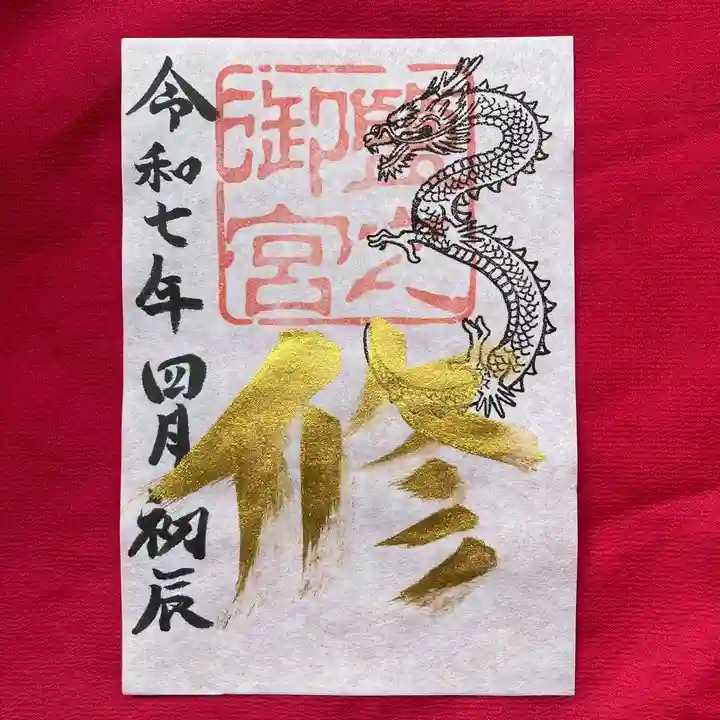 御宮
修
令和七年四月初辰